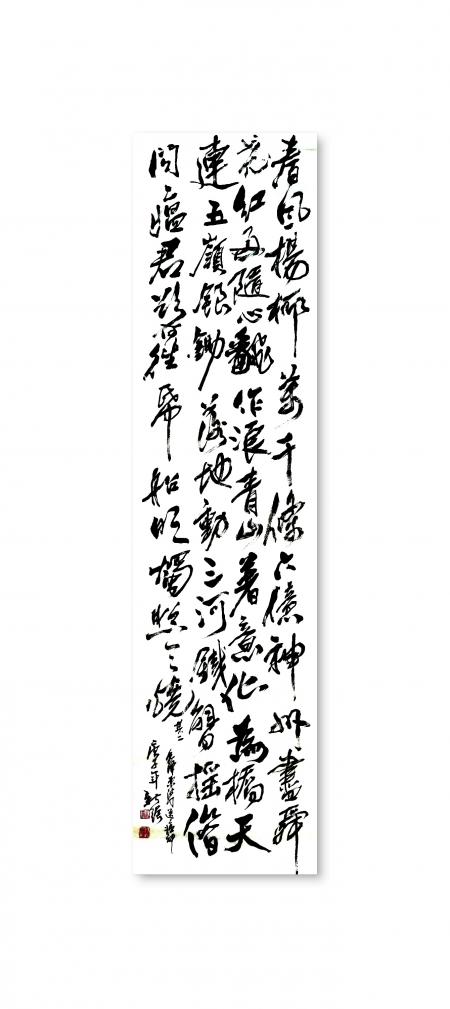 春風楊柳萬千條六億神州盡舜
堯紅雨隨心翻作浪青山著意化為橋天
連五嶺銀鋤落地動三河鐵臂搖借
問瘟君欲何往紙船明燭照天燒其二
毛澤東詩送瘟神
庚子年